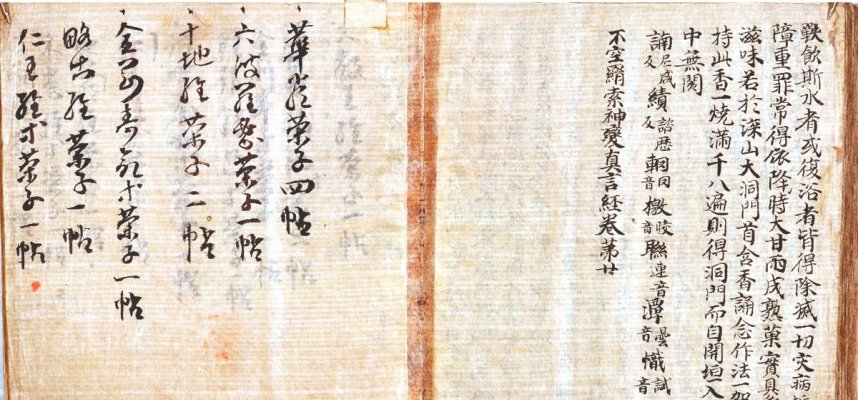 飲斯水者或復浴者皆得除滅一切灾病
障重罪常得依降時大甘雨成熟菓實具
滋味若於深山大洞門首含香誦念作法一
持此香一燒滿千八遍則得洞門而自開坦入
中無閡
諵尼咸反 績歷反 輞同音 檄音 聯連音 潭曇音 幟試音
不空羂索神變真言經卷第廿
華嚴策子四帖
六波羅蜜策子一帖
十地經策子二帖
金剛壽命木策子一帖
略出經策子一帖
仁王經木策子一帖